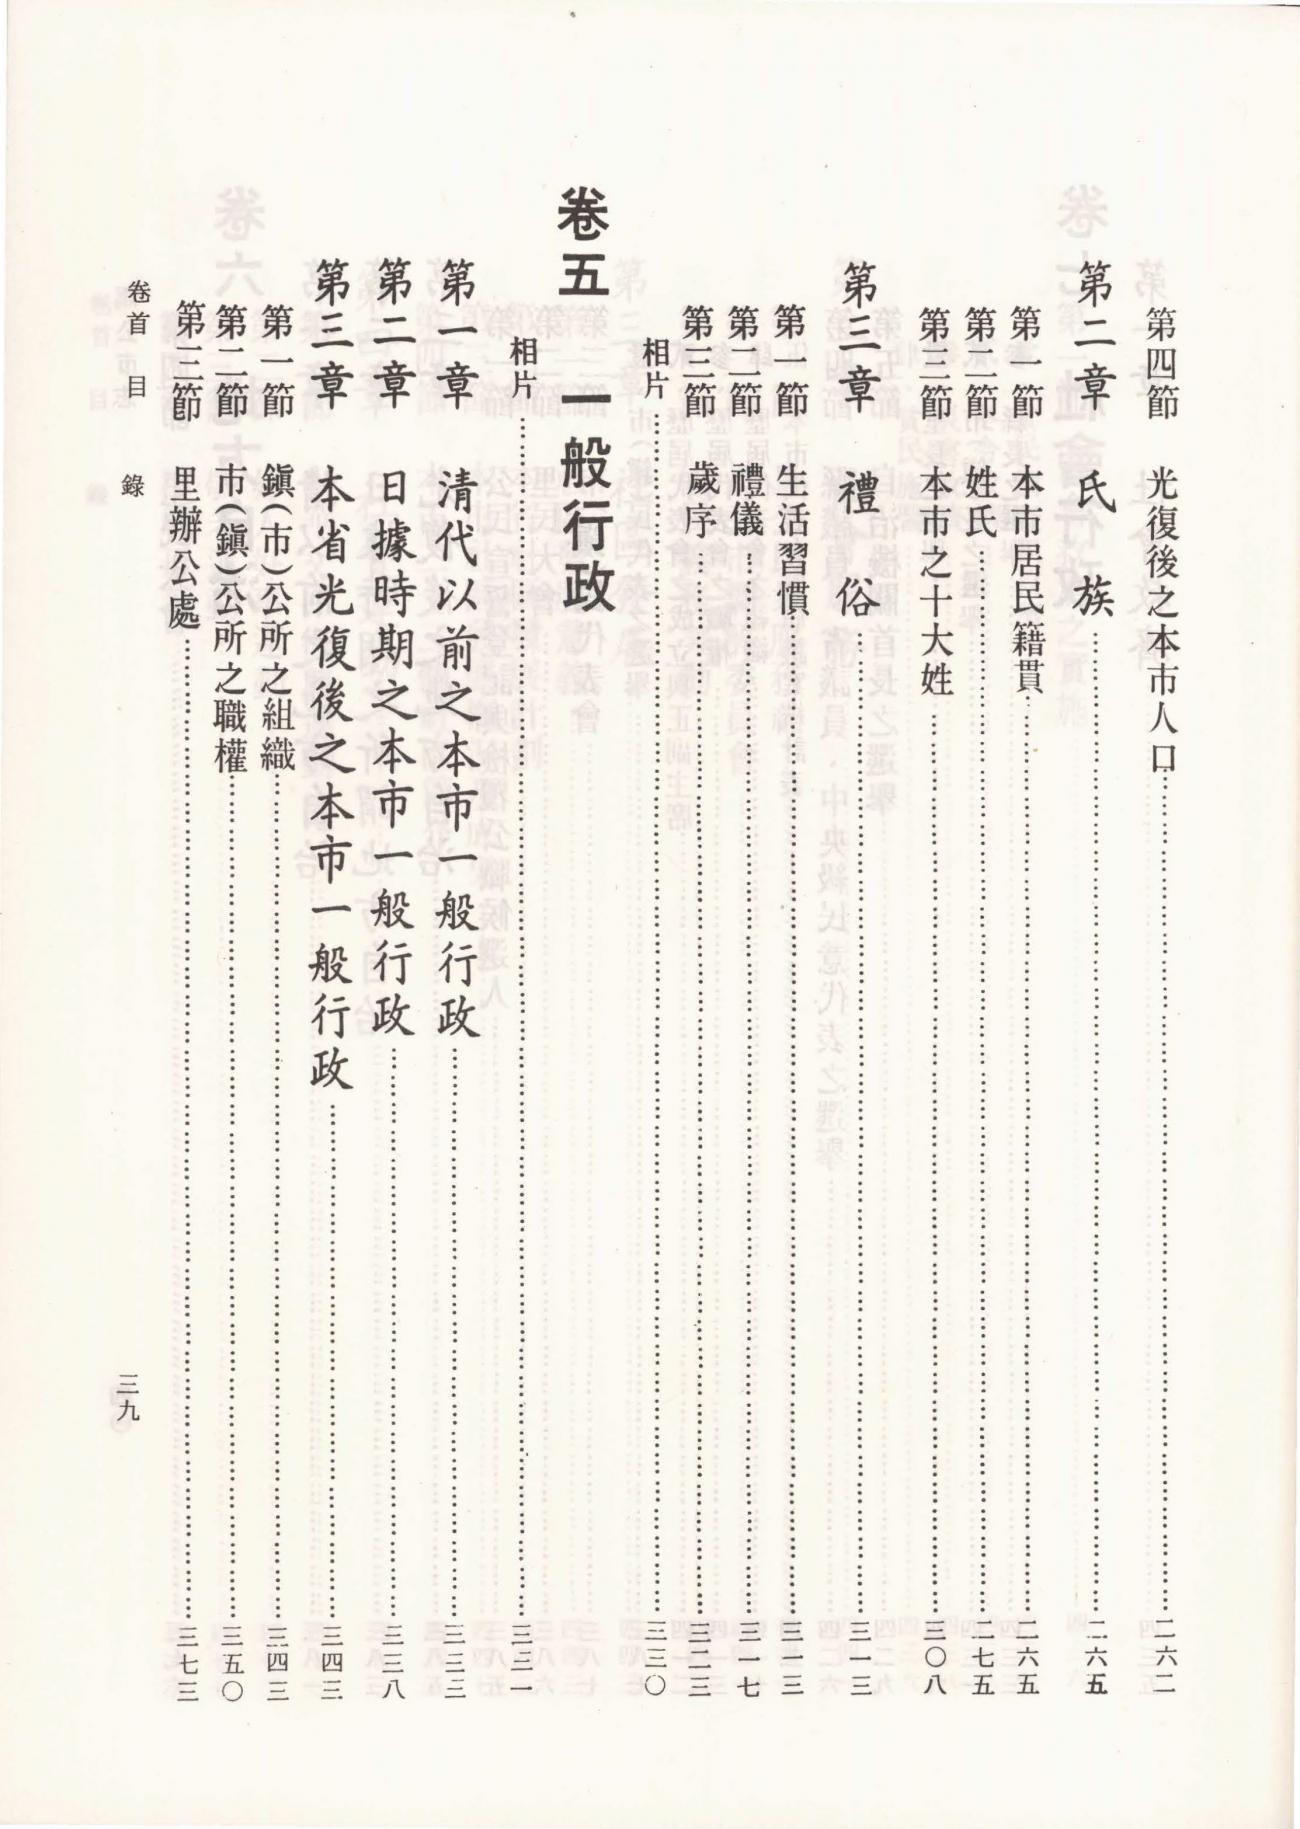 第四節　光復後之本市人口……二六二
第二章　氏　族……二六五
第一節　本市居民籍貫……二六五
第二節　姓氏……二七五
第三節　本市之十大姓……三〇八
第三章　禮　俗……三一三
第一節　生活習慣……三一三
第二節　禮儀……三一七
第三節　歲序……三二三
相片……三三〇
卷五　一般行政
相片……三三一
第一章　清代以前之本市一般行政……三三三
第二章　日據時期之本市一般行政……三三八
第三章　本省光復後之本市一般行政……三四三
第一節　鎮(市)公所之組織……三四三
第二節　市(鎮)公所之職權……三五〇
第三節　里辦公處……三七三
卷首　目　錄
三九